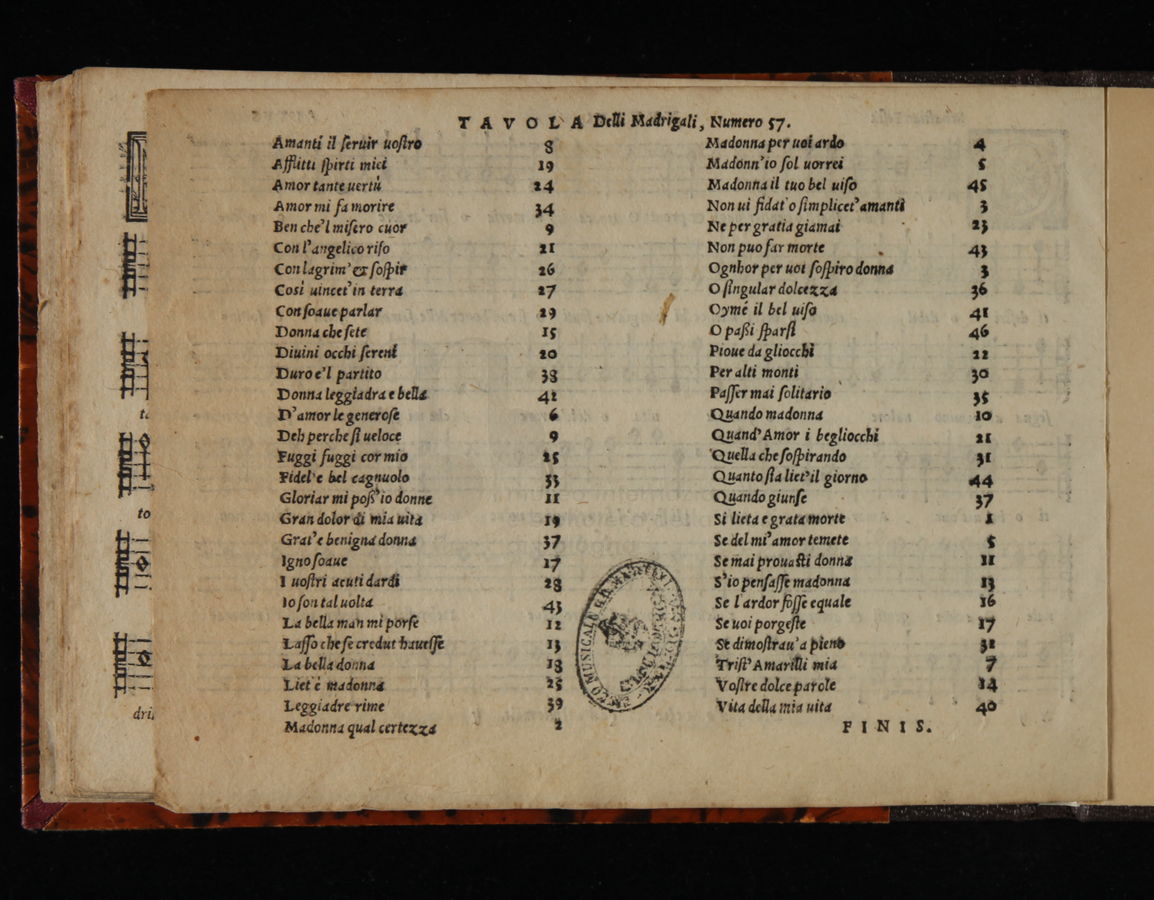 TAVOLA Delli Madrigali, Numero 57.
Amanti il seruir uostro 8
Afflitti spirti miei 19
Amor tante uertù 24
Amor mi fa morire 34
Ben che'l misero cuor 9
Con l'angelico riso 21
Con lagrim' & sospir 26
Cosi uincet'in terra 27
Con soaue parlar 29
Donna che sete 15
Diuini occhi sereni 20
Duro e'l partito 38
Donna leggiadra e bella 42
D'amor le generose 6
Deh perche si ueloce 9
Fuggi fuggi cor mio 25
Fidel'e bel cagnuolo 33
Gloriar mi poss'io donne 11
Gran dolor di mia uita 19
Grat'e benigna donna 37
Igno soaue 17
I uostri acuti dardi 28
Io son tal uolta 43
La bella man mi porse 12
Lasso che se credut hauesse 13
La bella donna 18
Liet'e madonna 25
Leggiadre rime 39
Madonna qual certezza 2
Madonna per uoi ardo 4
Madonn'io sol uorrei 5
Madonna il tuo bel uiso 45
Non ui fidat'o simplicet'amanti 3
Ne per gratia giamai 23
Non puo far morte 43
Ognhor per uoi sospiro donna 3
O singular dolcezza 36
Oymé il bel uiso 41
O passi sparsi 46
Pioue da gliocchi 22
Per alti monti 30
Passer mai solitario 35
Quando madonna 10
Quand'Amor i begliocchi 21
Quella che sospirando 31
Quanto sia liet'il giorno 44
Quando giunse 37
Si lieta e grata morte 1
Se del mi'amor temete 5
Se mai prouasti donna 11
S'io pensasse madonna 13
Se l'ardor fosse equale 16
Se uoi porgeste 17
Se dimostrau'a pieno 32
Trist'Amarilli mia 7
Vostre dolce parole 14
Vita della mia uita 40
FINIS.
to
dri